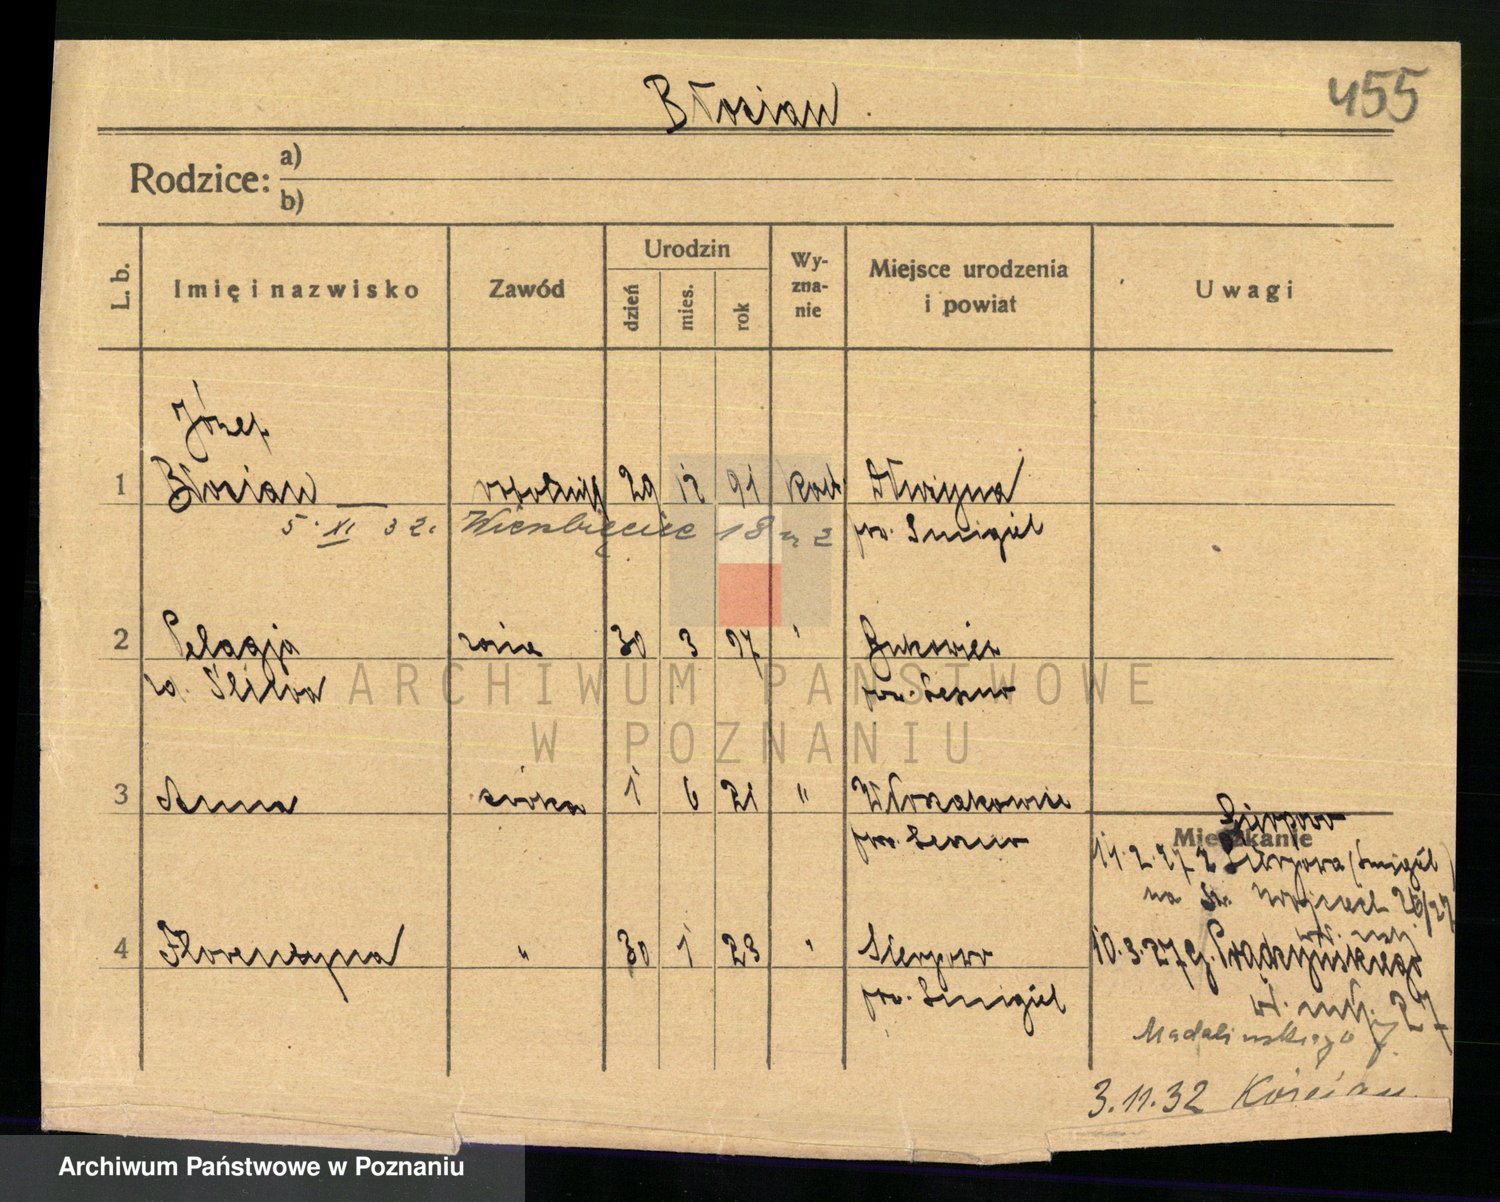 Błosian
455
Rodzice: a)
b)
L. b.
Imię i nazwisko
Zawód
Urodzin
dzień
mies.
rok
Wy-
zna-
nie
Miejsce urodzenia
i powiat
Uwagi
Józef
1 Błosian robotnik 29 12 91 kat. Dłużyna
5. XI 32. Wierzbięcice 18 m 2 pow. Śmigiel
2 Pelagja żona 30 3 97 " Bukowiec
ro. Śliwa pow. Leszno
ARCHIWUM PAŃSTWOWE
W POZNANIU
3 Anna córka 1 6 21 " Włoszakowice
pow. Leszno
Sierpowo
Mieszkanie
11.2.27 z Sierpowa (Śmigiel)
na Św. Wojciech 26/27
4 Florentyna " 30 1 23 " Sierpowo
10.3.27 G. Prądzyńskiego
pow. Śmigiel
27
Madalińskiego 7
3.11.32 Kościan
Archiwum Państwowe w Poznaniu